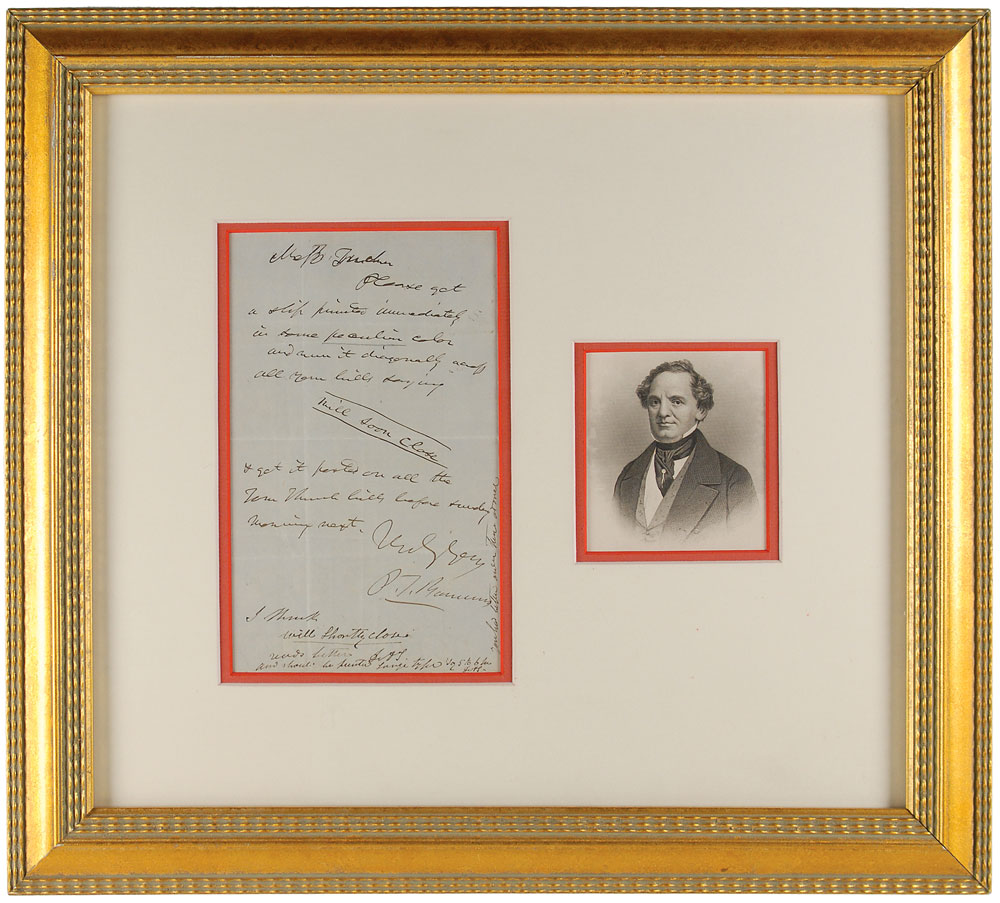 Please get
a slip printed immediately
in some peculiar color
and run it diagonally across
all your bills saying
Will soon close
& get it posted on all the
Tom Thumb bills before sunday
morning next.
Truly Yours
P. T. Barnum
I think
will shortly close
reads better
and should be printed large type